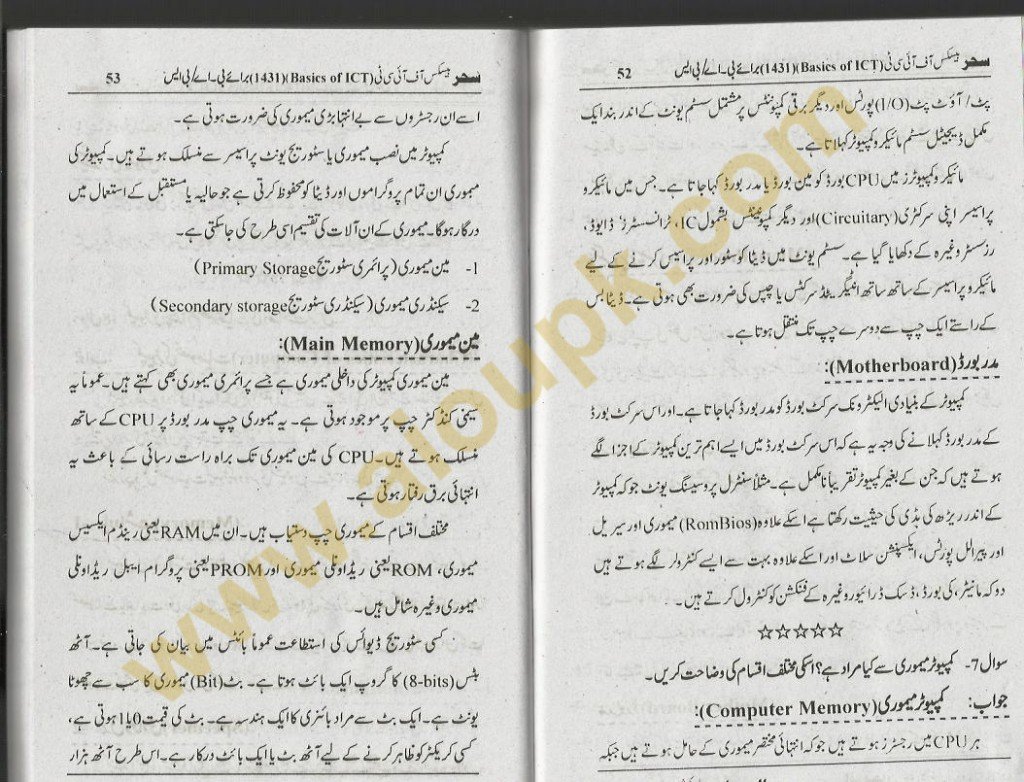 سحر بیسکس آف آئی سی ٹی (Basics of ICT)(1431) برائے بی۔اے/بی ایس 52
پٹ/آؤٹ پٹ (I/O) پورٹس اور دیگر برقی کمپونٹس پر مشتمل سسٹم یونٹ کے اندر بند ایک
مکمل ڈیجیٹل سسٹم مائیکرو کمپیوٹر کہلاتا ہے۔
مائیکرو کمپیوٹرز میں CPU بورڈ کو مین بورڈ یا مدر بورڈ کہا جاتا ہے۔ جس میں مائیکرو
پراسیسر اپنی سرکٹری (Circuitary) اور دیگر کمپونینٹس بشمول IC، ٹرانسسٹرز ڈایوڈ،
رزسٹر وغیرہ کے دکھایا گیا ہے۔ سسٹم یونٹ میں ڈیٹا کو سٹور اور پراسیس کرنے کے لیے
مائیکرو پراسیسر کے ساتھ ساتھ انٹیگریٹڈ سرکٹس یا چپس کی ضرورت بھی ہوتی ہے۔ ڈیٹا بس
کے راستے ایک چپ سے دوسرے چپ تک منتقل ہوتا ہے۔
مدر بورڈ (Motherboard):
کمپیوٹر کے بنیادی الیکٹرونک سرکٹ بورڈ کو مدر بورڈ کہا جاتا ہے۔ اور اس سرکٹ بورڈ
کے مدر بورڈ کہلانے کی وجہ یہ ہے کہ اس سرکٹ بورڈ میں ایسے اہم ترین کمپیوٹر کے اجزا لگے
ہوتے ہیں کہ جن کے بغیر کمپیوٹر تقریباً نامکمل ہے۔ مثلاً سنٹرل پروسیسنگ یونٹ جو کہ کمپیوٹر
کے اندر ریڑھ کی ہڈی کی حیثیت رکھتا ہے اسکے علاوہ (RomBios) میموری اور سیریل
اور پیرالل پورٹس، ایکسپنشن سلاٹ اور اسکے علاوہ بہت سے ایسے کنٹرولر لگے ہوتے ہیں
دو کہ مانیٹر، کی بورڈ، ڈسک ڈرائیور وغیرہ کے فنکشن کو کنٹرول کرتے ہیں۔
☆☆☆☆☆
سوال 7- کمپیوٹر میموری سے کیا مراد ہے؟ اسکی مختلف اقسام کی وضاحت کریں۔
جواب: کمپیوٹر میموری (Computer Memory):
ہر CPU میں رجسٹرز ہوتے ہیں جو کہ انتہائی مختصر میموری کے حامل ہوتے ہیں جبکہ
سحر بیسکس آف آئی سی ٹی (Basics of ICT)(1431) برائے بی۔اے/بی ایس 53
اسے ان رجسٹروں سے بے انتہا بڑی میموری کی ضرورت ہوتی ہے۔
کمپیوٹر میں نصب میموری یا سٹوریج یونٹ پراسیسر سے منسلک ہوتے ہیں۔ کمپیوٹر کی
میموری ان تمام پروگراموں اور ڈیٹا کو محفوظ کرتی ہے جو حالیہ یا مستقبل کے استعمال میں
درکار ہوگا۔ میموری کے ان آلات کی تقسیم اسی طرح کی جاسکتی ہے۔
1- مین میموری (پرائمری سٹوریج Primary Storage)
2- سیکنڈری میموری (سیکنڈری سٹوریج Secondary storage)
مین میموری (Main Memory):
مین میموری کمپیوٹر کی داخلی میموری ہے جسے پرائمری میموری بھی کہتے ہیں۔ عموماً یہ
سیمی کنڈکٹر چپ پر موجود ہوتی ہے۔ یہ میموری چپ مدر بورڈ پر CPU کے ساتھ
منسلک ہوتے ہیں۔ CPU کی مین میموری تک براہ راست رسائی کے باعث یہ
انتہائی برق رفتار ہوتی ہے۔
مختلف اقسام کے میموری چپ دستیاب ہیں۔ ان میں RAM یعنی رینڈم ایکسیس
میموری، ROM یعنی ریڈ اونلی میموری اور PROM یعنی پروگرام ایبل ریڈ اونلی
میموری وغیرہ شامل ہیں۔
کسی سٹوریج ڈیوائس کی استطاعت عموماً بائٹس میں بیان کی جاتی ہے۔ آٹھ
بٹس (8-bits) کا گروپ ایک بائٹ ہوتا ہے۔ بٹ (Bit) میموری کا سب سے چھوٹا
یونٹ ہے۔ ایک بٹ سے مراد بائنری کا ایک ہندسہ ہے۔ بٹ کی قیمت 0 یا 1 ہوتی ہے،
کسی کریکٹر کو ظاہر کرنے کے لیے آٹھ بٹ یا ایک بائٹ درکار ہے۔ اس طرح آٹھ ہزار
www.aioupk.com